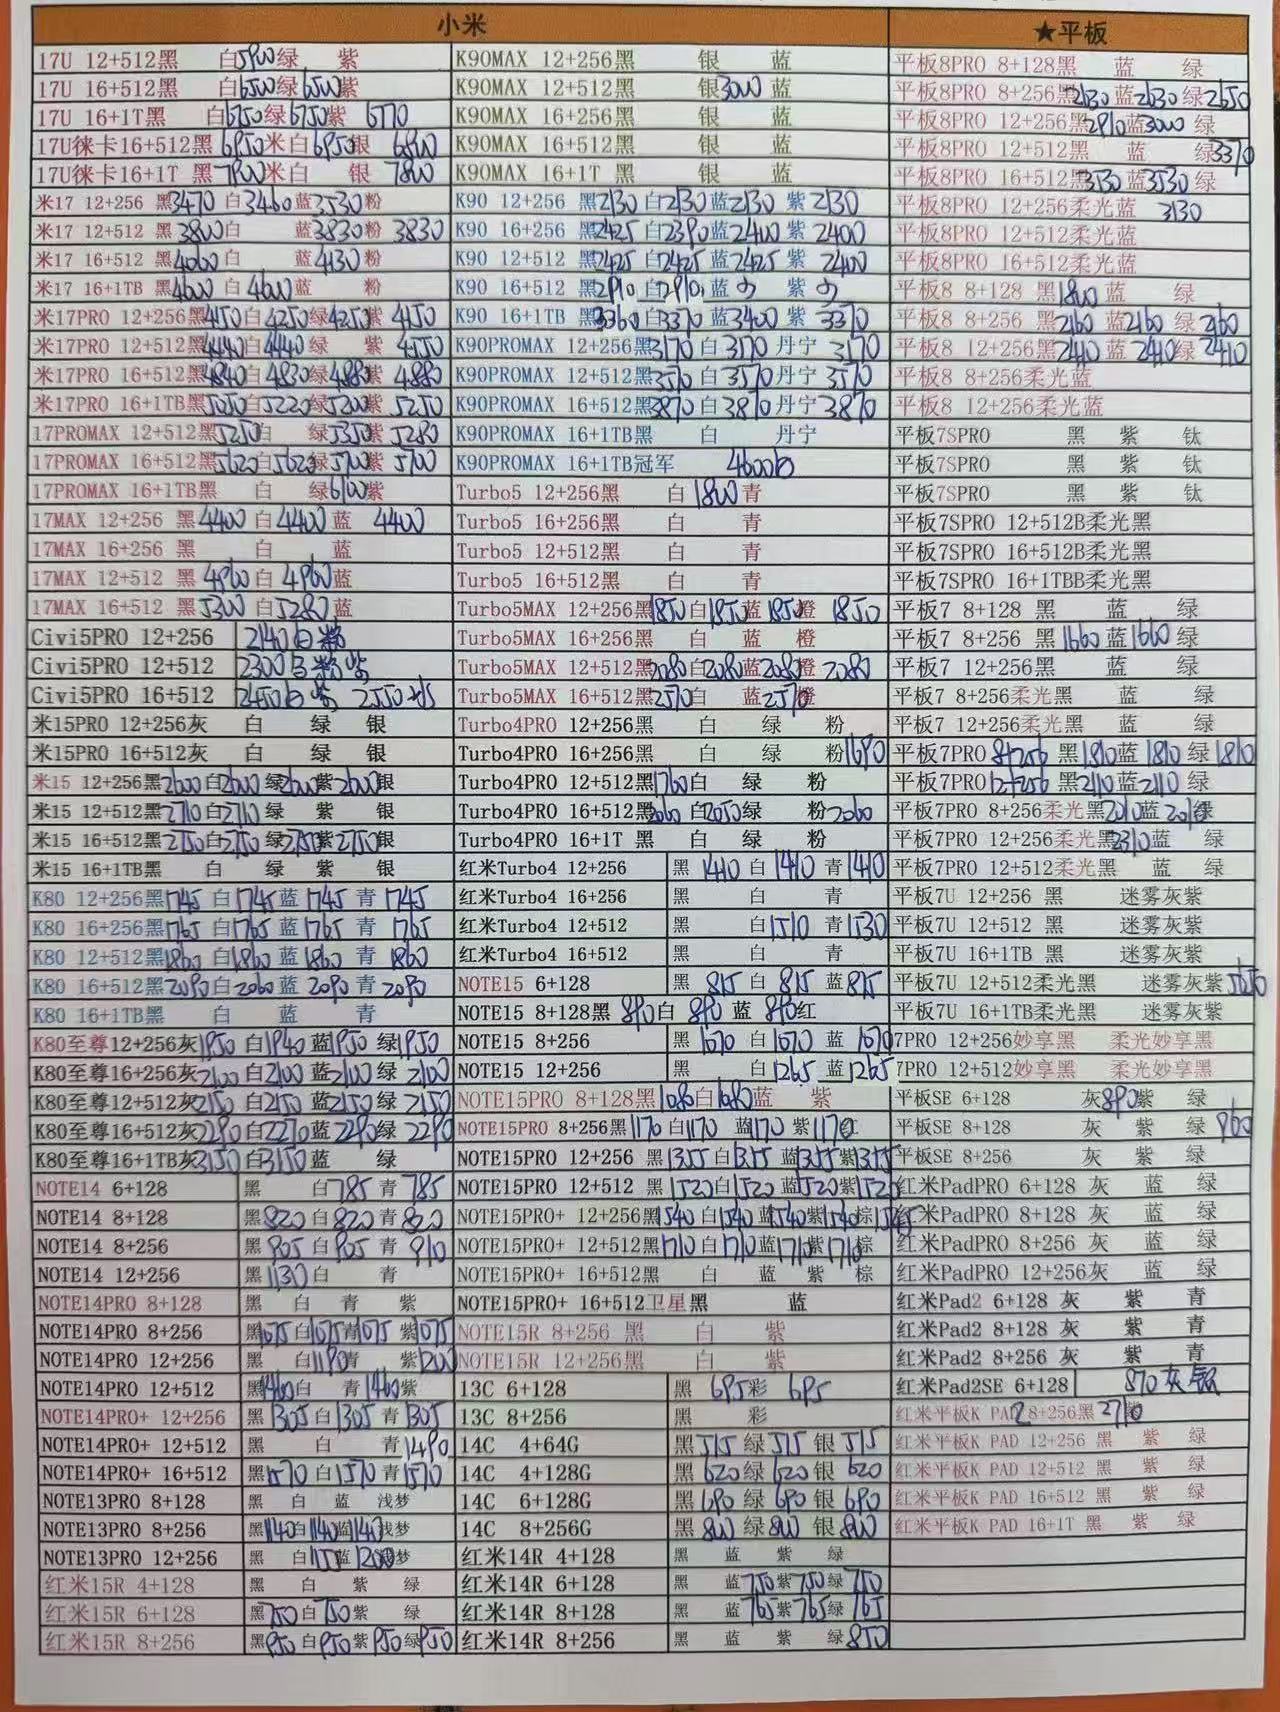 小米
17U 12+512黑 白5900绿 紫
17U 16+512黑 白6500绿6500紫
17U 16+1T黑 白6750绿6750紫 6770
17U徕卡16+512黑6950米白6950银 6800
17U徕卡16+1T 黑7900米白 银 7800
米17 12+256 黑3470 白3460蓝3530粉
米17 12+512 黑3800白 蓝3830粉 3830
米17 16+512 黑4060白 蓝4130粉
米17 16+1TB 黑4600白4600蓝 粉
米17PRO 12+256黑4150白4250绿4250紫 4150
米17PRO 12+512黑4440白4440绿 紫 4450
米17PRO 16+512黑4840白4830绿4880紫 4880
米17PRO 16+1TB黑5050白5220绿5200紫 5250
17PROMAX 12+512黑5250白 绿5350紫 5280
17PROMAX 16+512黑5620白5620绿5700紫 5700
17PROMAX 16+1TB黑 白 绿6100紫
17MAX 12+256 黑4400白4400蓝 4400
17MAX 16+256 黑 白 蓝
17MAX 12+512 黑4960白4960蓝
17MAX 16+512 黑5300白5280蓝
Civi5PRO 12+256 2140白粉
Civi5PRO 12+512 2300白粉紫
Civi5PRO 16+512 2450白紫 2550粉
米15PRO 12+256灰 白 绿 银
米15PRO 16+512灰 白 绿 银
米15 12+256黑2600白2600绿2600紫2600银
米15 12+512黑2710白2710绿 紫 银
米15 16+512黑2750白2750绿2750紫2750银
米15 16+1TB黑 白 绿 紫 银
K80 12+256黑1745 白1745蓝1745青1745
K80 16+256黑1765 白1765蓝1765青1765
K80 12+512黑1860 白1860蓝1860青1860
K80 16+512黑2090白2060蓝2090青2090
K80 16+1TB黑 白 蓝 青
K80至尊12+256灰1950 白1940蓝1950绿1950
K80至尊16+256灰2100白2100蓝2100绿2100
K80至尊12+512灰2150白2150蓝2150绿2150
K80至尊16+512灰2290白2270蓝2290绿2290
K80至尊16+1TB灰3150白3150蓝 绿
NOTE14 6+128 黑 白785青785
NOTE14 8+128 黑820白820青820
NOTE14 8+256 黑905白905青910
NOTE14 12+256 黑1130白 青
NOTE14PRO 8+128 黑 白 青 紫
NOTE14PRO 8+256 黑1075白1075青1075紫1075
NOTE14PRO 12+256 黑 白1190青 紫1200
NOTE14PRO 12+512 黑1460白 青1460紫
NOTE14PRO+ 12+256 黑1305白1305青1305
NOTE14PRO+ 12+512 黑 白 青1490
NOTE14PRO+ 16+512 黑1570白1570青1570
NOTE13PRO 8+128 黑 白 蓝 浅梦
NOTE13PRO 8+256 黑1140白1140蓝1140浅梦
NOTE13PRO 12+256 黑 白1151蓝1200浅梦
红米15R 4+128 黑 白 紫 绿
红米15R 6+128 黑750白750紫 绿
红米15R 8+256 黑950白950紫950绿950
K90MAX 12+256黑 银 蓝
K90MAX 12+512黑 银3000蓝
K90MAX 16+256黑 银 蓝
K90MAX 16+512黑 银 蓝
K90MAX 16+1T黑 银 蓝
K90 12+256 黑2130白2130蓝2130紫2130
K90 16+256 黑2425白2390蓝2400紫2400
K90 12+512 黑2425白2425蓝2425紫2400
K90 16+512 黑2910白2910蓝 紫
K90 16+1TB 黑3360白3370蓝3400紫3370
K90PROMAX 12+256黑3170白3170丹宁3170
K90PROMAX 12+512黑3570白3570丹宁3570
K90PROMAX 16+512黑3870白3870丹宁3870
K90PROMAX 16+1TB黑 白 丹宁
K90PROMAX 16+1TB冠军 4600白
Turbo5 12+256黑 白1800青
Turbo5 16+256黑 白 青
Turbo5 12+512黑 白 青
Turbo5 16+512黑 白 青
Turbo5MAX 12+256黑1850白1850蓝1850橙1850
Turbo5MAX 16+256黑 白 蓝 橙
Turbo5MAX 12+512黑2080白2080蓝2080橙2080
Turbo5MAX 16+512黑2570白 蓝2570橙
Turbo4PRO 12+256黑 白 绿 粉
Turbo4PRO 16+256黑 白 绿 粉1690
Turbo4PRO 12+512黑1760白 绿 粉
Turbo4PRO 16+512黑2060白2050绿 粉2060
Turbo4PRO 16+1T 黑 白 绿 粉
红米Turbo4 12+256 黑1410白1410青1410
红米Turbo4 16+256 黑 白 青
红米Turbo4 12+512 黑 白1510青1530
红米Turbo4 16+512 黑 白 青
NOTE15 6+128 黑815白815蓝815
NOTE15 8+128黑890白890蓝890红
NOTE15 8+256 黑1070白1070蓝1070
NOTE15 12+256 黑 白1265蓝1265
NOTE15PRO 8+128黑1080白1080蓝 紫
NOTE15PRO 8+256黑1170白1170蓝1170紫1170
NOTE15PRO 12+256 黑1355白1355蓝1355紫1355
NOTE15PRO 12+512 黑1520白1520蓝1520紫1520
NOTE15PRO+ 12+256黑1540白1540蓝1540紫1540棕1545
NOTE15PRO+ 12+512黑1710白1710蓝1710紫1710棕
NOTE15PRO+ 16+512黑 白 蓝 紫 棕
NOTE15PRO+ 16+512卫星黑 蓝
NOTE15R 8+256 黑 白 紫
NOTE15R 12+256黑 白 紫
13C 6+128 黑695彩695
13C 8+256 黑 彩
14C 4+64G 黑515绿515银515
14C 4+128G 黑620绿620银620
14C 6+128G 黑690绿690银690
14C 8+256G 黑800绿800银800
红米14R 4+128 黑 蓝 紫 绿
红米14R 6+128 黑 蓝750紫750绿750
红米14R 8+128 黑 蓝765紫765绿765
红米14R 8+256 黑 蓝 紫 绿850
★平板
平板8PRO 8+128黑 蓝 绿
平板8PRO 8+256黑2630蓝2630绿2650
平板8PRO 12+256黑2910蓝3000绿
平板8PRO 12+512黑 蓝 绿3370
平板8PRO 16+512黑3530蓝3530绿
平板8PRO 12+256柔光蓝 3130
平板8PRO 12+512柔光蓝
平板8PRO 16+512柔光蓝
平板8 8+128 黑1800蓝 绿
平板8 8+256 黑2160蓝2160绿2160
平板8 12+256黑2410蓝2410绿2410
平板8 8+256柔光蓝
平板8 12+256柔光蓝
平板7SPRO 黑 紫 钛
平板7SPRO 黑 紫 钛
平板7SPRO 黑 紫 钛
平板7SPRO 12+512B柔光黑
平板7SPRO 16+512B柔光黑
平板7SPRO 16+1TBB柔光黑
平板7 8+128 黑 蓝 绿
平板7 8+256 黑1660蓝1660绿
平板7 12+256黑 蓝 绿
平板7 8+256柔光黑 蓝 绿
平板7 12+256柔光黑 蓝 绿
平板7PRO 8+256 黑1810蓝1810绿1810
平板7PRO12+256 黑2110蓝2110绿
平板7PRO 8+256柔光黑2010蓝2010绿
平板7PRO 12+256柔光黑2310蓝 绿
平板7PRO 12+512柔光黑 蓝 绿
平板7U 12+256 黑 迷雾灰紫
平板7U 12+512 黑 迷雾灰紫
平板7U 16+1TB 黑 迷雾灰紫
平板7U 12+512柔光黑 迷雾灰紫5650
平板7U 16+1TB柔光黑 迷雾灰紫
7PRO 12+256妙享黑 柔光妙享黑
7PRO 12+512妙享黑 柔光妙享黑
平板SE 6+128 灰890紫 绿
平板SE 8+128 灰 紫 绿960
平板SE 8+256 灰 紫 绿
红米PadPRO 6+128 灰 蓝 绿
红米PadPRO 8+128 灰 蓝 绿
红米PadPRO 8+256 灰 蓝 绿
红米PadPRO 12+256灰 蓝 绿
红米Pad2 6+128 灰 紫 青
红米Pad2 8+128 灰 紫 青
红米Pad2 8+256 灰 紫 青
红米Pad2SE 6+128 870灰银
红米平板K PAD2 8+256黑2710
红米平板K PAD 12+256 黑 紫 绿
红米平板K PAD 12+512 黑 紫 绿
红米平板K PAD 16+512 黑 紫 绿
红米平板K PAD 16+1T 黑 紫 绿